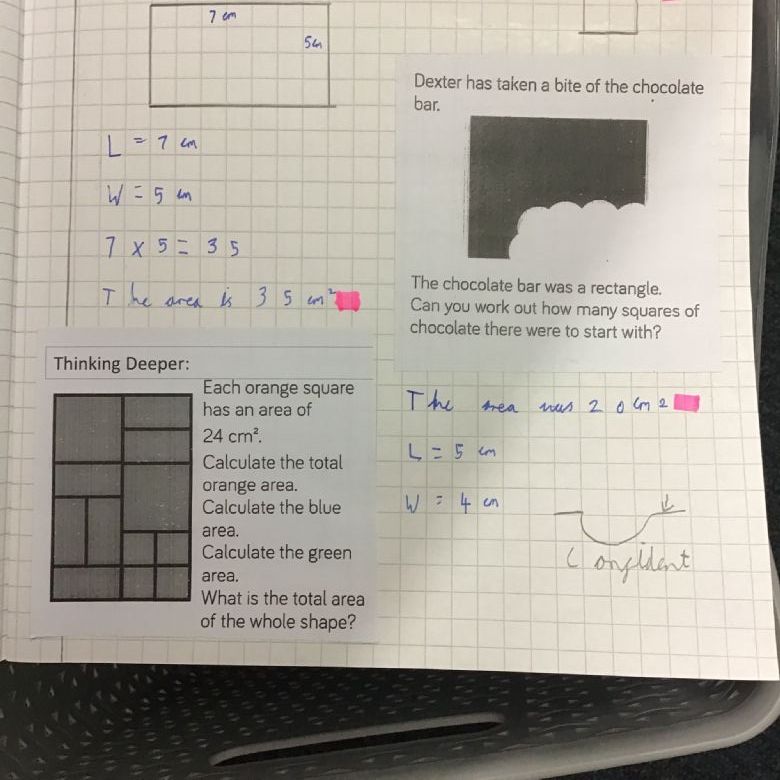 7 cm
5cm
L = 7 cm
W = 5 cm
7 x 5 = 35
The area is 35 cm²
Thinking Deeper:
Each orange square
has an area of
24 cm².
Calculate the total
orange area.
Calculate the blue
area.
Calculate the green
area.
What is the total area
of the whole shape?
Dexter has taken a bite of the chocolate
bar.
The chocolate bar was a rectangle.
Can you work out how many squares of
chocolate there were to start with?
The area was 20 cm2
L = 5 cm
W = 4 cm
Confident